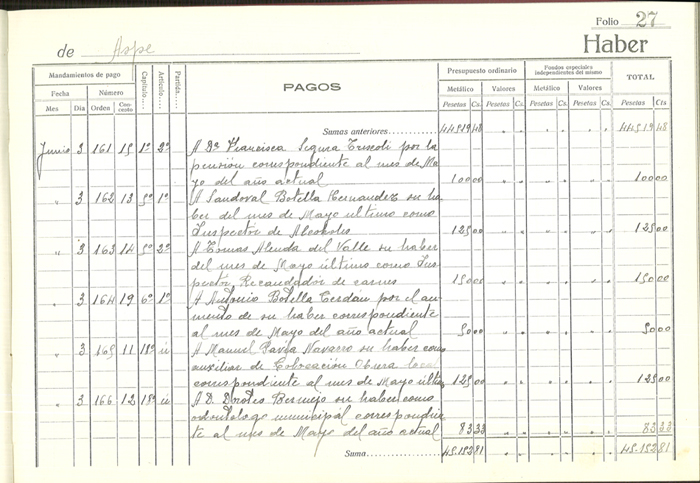 Folio 27
de Aspe Haber
Mandamientos de pago Capítulo.... Artículo.... Partida.... PAGOS Presupuesto ordinario Fondos especiales independientes del mismo TOTAL
Fecha Número Metálico Valores Metálico Valores
Mes Día Orden Concepto Pesetas Cs. Pesetas Cs. Pesetas Cs. Pesetas Cs. Pesetas Cts
Sumas anteriores 44519 48 " " " " " " 44519 48
Junio 3 161 15 1º 2º A Dª Francisca Segura por la
pensión correspondiente al mes de Ma-
yo del año actual 100 00 " " " " " " 100 00
" 3 162 13 5º 1º A Sandoval Botella Cernandez su ha-
ber del mes de Mayo último como
Inspector de Alcoholes 125 00 " " " " " " 125 00
" 3 163 14 5º 2º A Tomas Alenda del Valle su haber
del mes de Mayo último como Ins-
pector Recaudador de carnes 150 00 " " " " " " 150 00
" 3 164 19 6º 1º A Antonio Botella Cerdán por el au-
mento de su haber correspondiente
al mes de Mayo del año actual 50 00 " " " " " " 50 00
" 3 165 11 18º A Manuel Pavía Navarro su haber como
auxiliar de Colocación Obrera local
correspondiente al mes de Mayo últi 125 00 " " " " " " 125 00
" 3 166 12 18º A D. Doroteo Bermejo su haber como
odontólogo municipal correspondien-
te al mes de Mayo del año actual 83 33 " " " " " " 83 33
Suma 45.152 81 " " " " " " 45.152 81